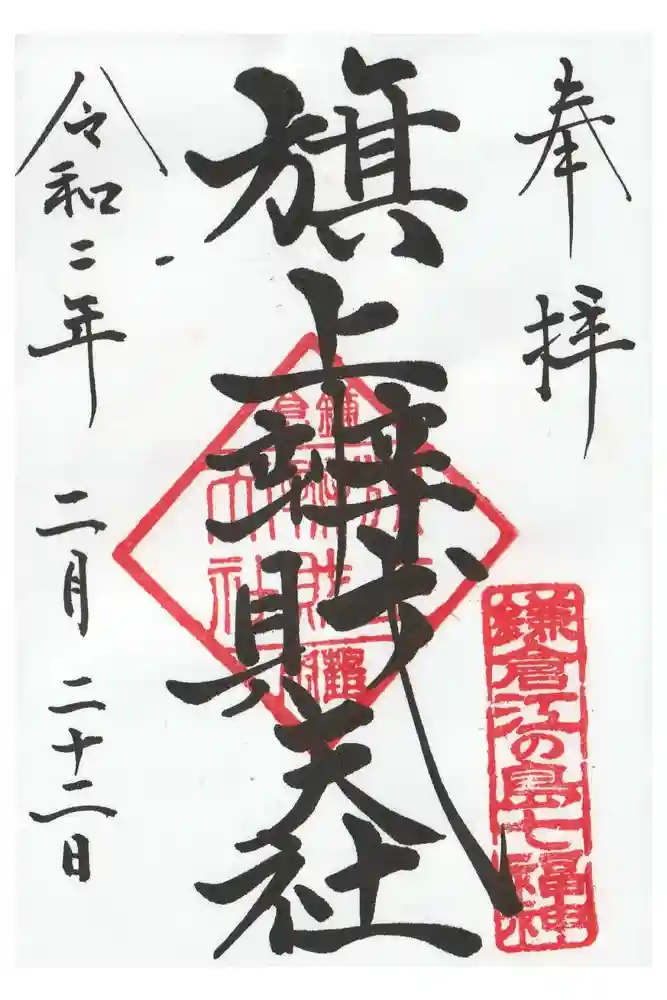 奉拝
鎌倉江の島七福神
旗上辨財天社
令和二年 二月 二十二日